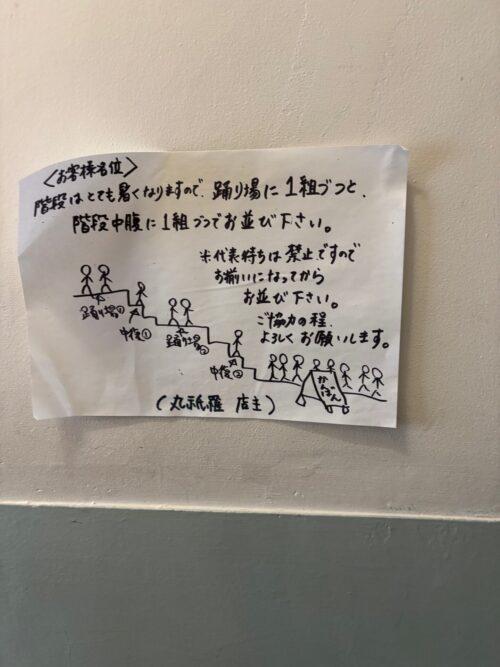 〈お客様各位〉
階段はとても暑くなりますので、踊り場に1組づつと、
階段中腹に1組づつでお並び下さい。
※代表待ちは禁止ですので
お揃いになってから
お並び下さい。
ご協力の程
よろしくお願いします。
踊り場①
中腹①
踊り場②
中腹②
かんばん
(丸祇羅 店主)